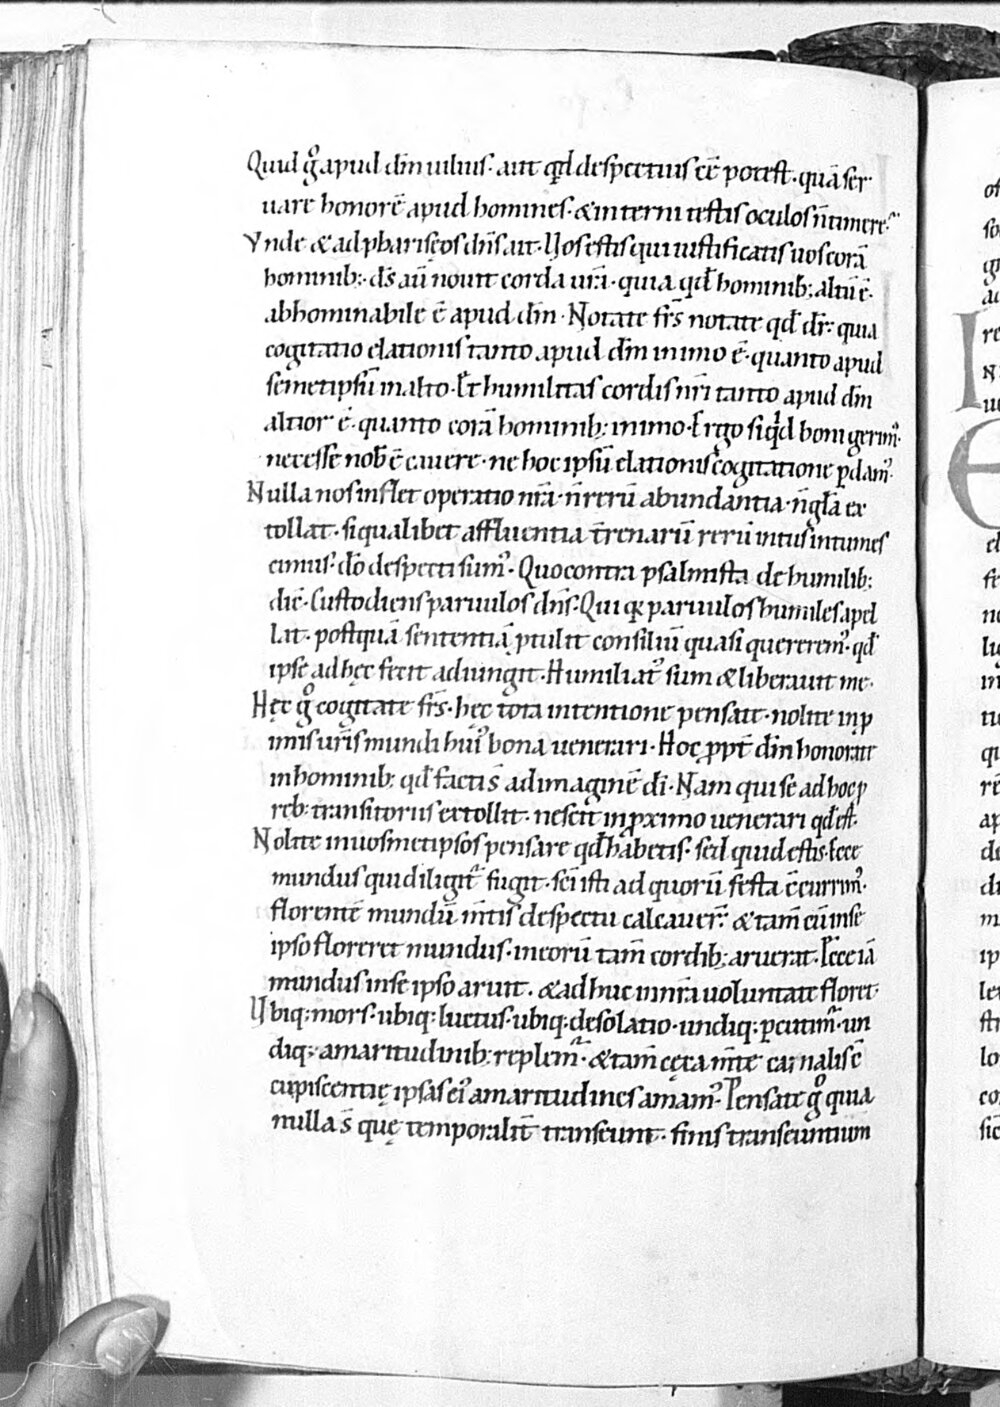 Quid gͦ apud dm̄ uilius· aut qͥd despectius ēē potest· quā ser
uare honorē apud homines· & interni testis oculos n̄ timere·
Vnde & ad pharisęos dn̄s ait· Uos estis qui iustificatis uos corā
hominib;· ds̄ aū nouit corda ur̄a· quia qd̄ hominib; altū ē·
abhominabile ē apud dm̄· Notate frs̄ notate qd̄ dr̄· quia
cogitatio elationis tanto apud dm̄ in imo ē· quanto apud
semetipsū in alto· Et humilitas cordis nr̄i tanto apud dm̄
altior ē· quanto corā hominib; in imo· Ergo siqͥd boni gerimꝰ·
necesse nob̄ ē cauere· ne hoc ipsū elationis cogitatione ꝑdamꝰ·
Nulla nos inflet operatio nr̄a· n̄ rerū abundantia· n̄ gl̄a ex
tollat· si qualibet affluentia t̄renarū rerū intus intumes
cimus· dō despecti sumꝰ· Quo contra psalmista de humilib;
dic̄· Custodiens paruulos dn̄s· Qui q̄ꝛ paruulos humiles apel
lat· postquā sententiā ꝓtulit consiliū quasi quereremꝰ· qd̄
ipse ad hęc fecit adiungit· Humiliatꝰ sum & liberauit me·
Hęc gͦ cogitate frs̄· hęc tota intentione pensate· nolite in ꝓ
imis ur̄is mundi huiꝰ bona uenerari· Hoc ꝓpt̄ dm̄ honorate
in hominib; qd̄ facti s̄ ad imaginē di̅· Nam qui se ad hoc ꝓ
reb; transitoriis extollit· nescit in ꝓximo uenerari qd̄ est·
Nolite in uosmetipsos pensare qd̄ habetis· sed quid estis· Ecce
mundus qui diligit᷑ fugit· sc̄i isti ad quorū festa c̄currimꝰ·
florentē mundū m̄tis despectu calcauer̄· & tam̄ cū in se
ipso floreret mundus· in eorū tam̄ cordib; aruerat· Ecce iā
mundus in se ipso aruit· & adhuc in nr̄a uoluntate floret·
Ubiq; mors· ubiq; luctus· ubiq; desolatio· undiq; ꝑcutim᷑· un
diq; amaritudinib; replem᷑· & tam̄ cęca m̄te carnalis c̄
cupiscentię ipsas eiꝰ amaritudines amamꝰ· Pensate gͦ quia
nulla s̄ quę temporalit̄ transeunt· finis transeuntium